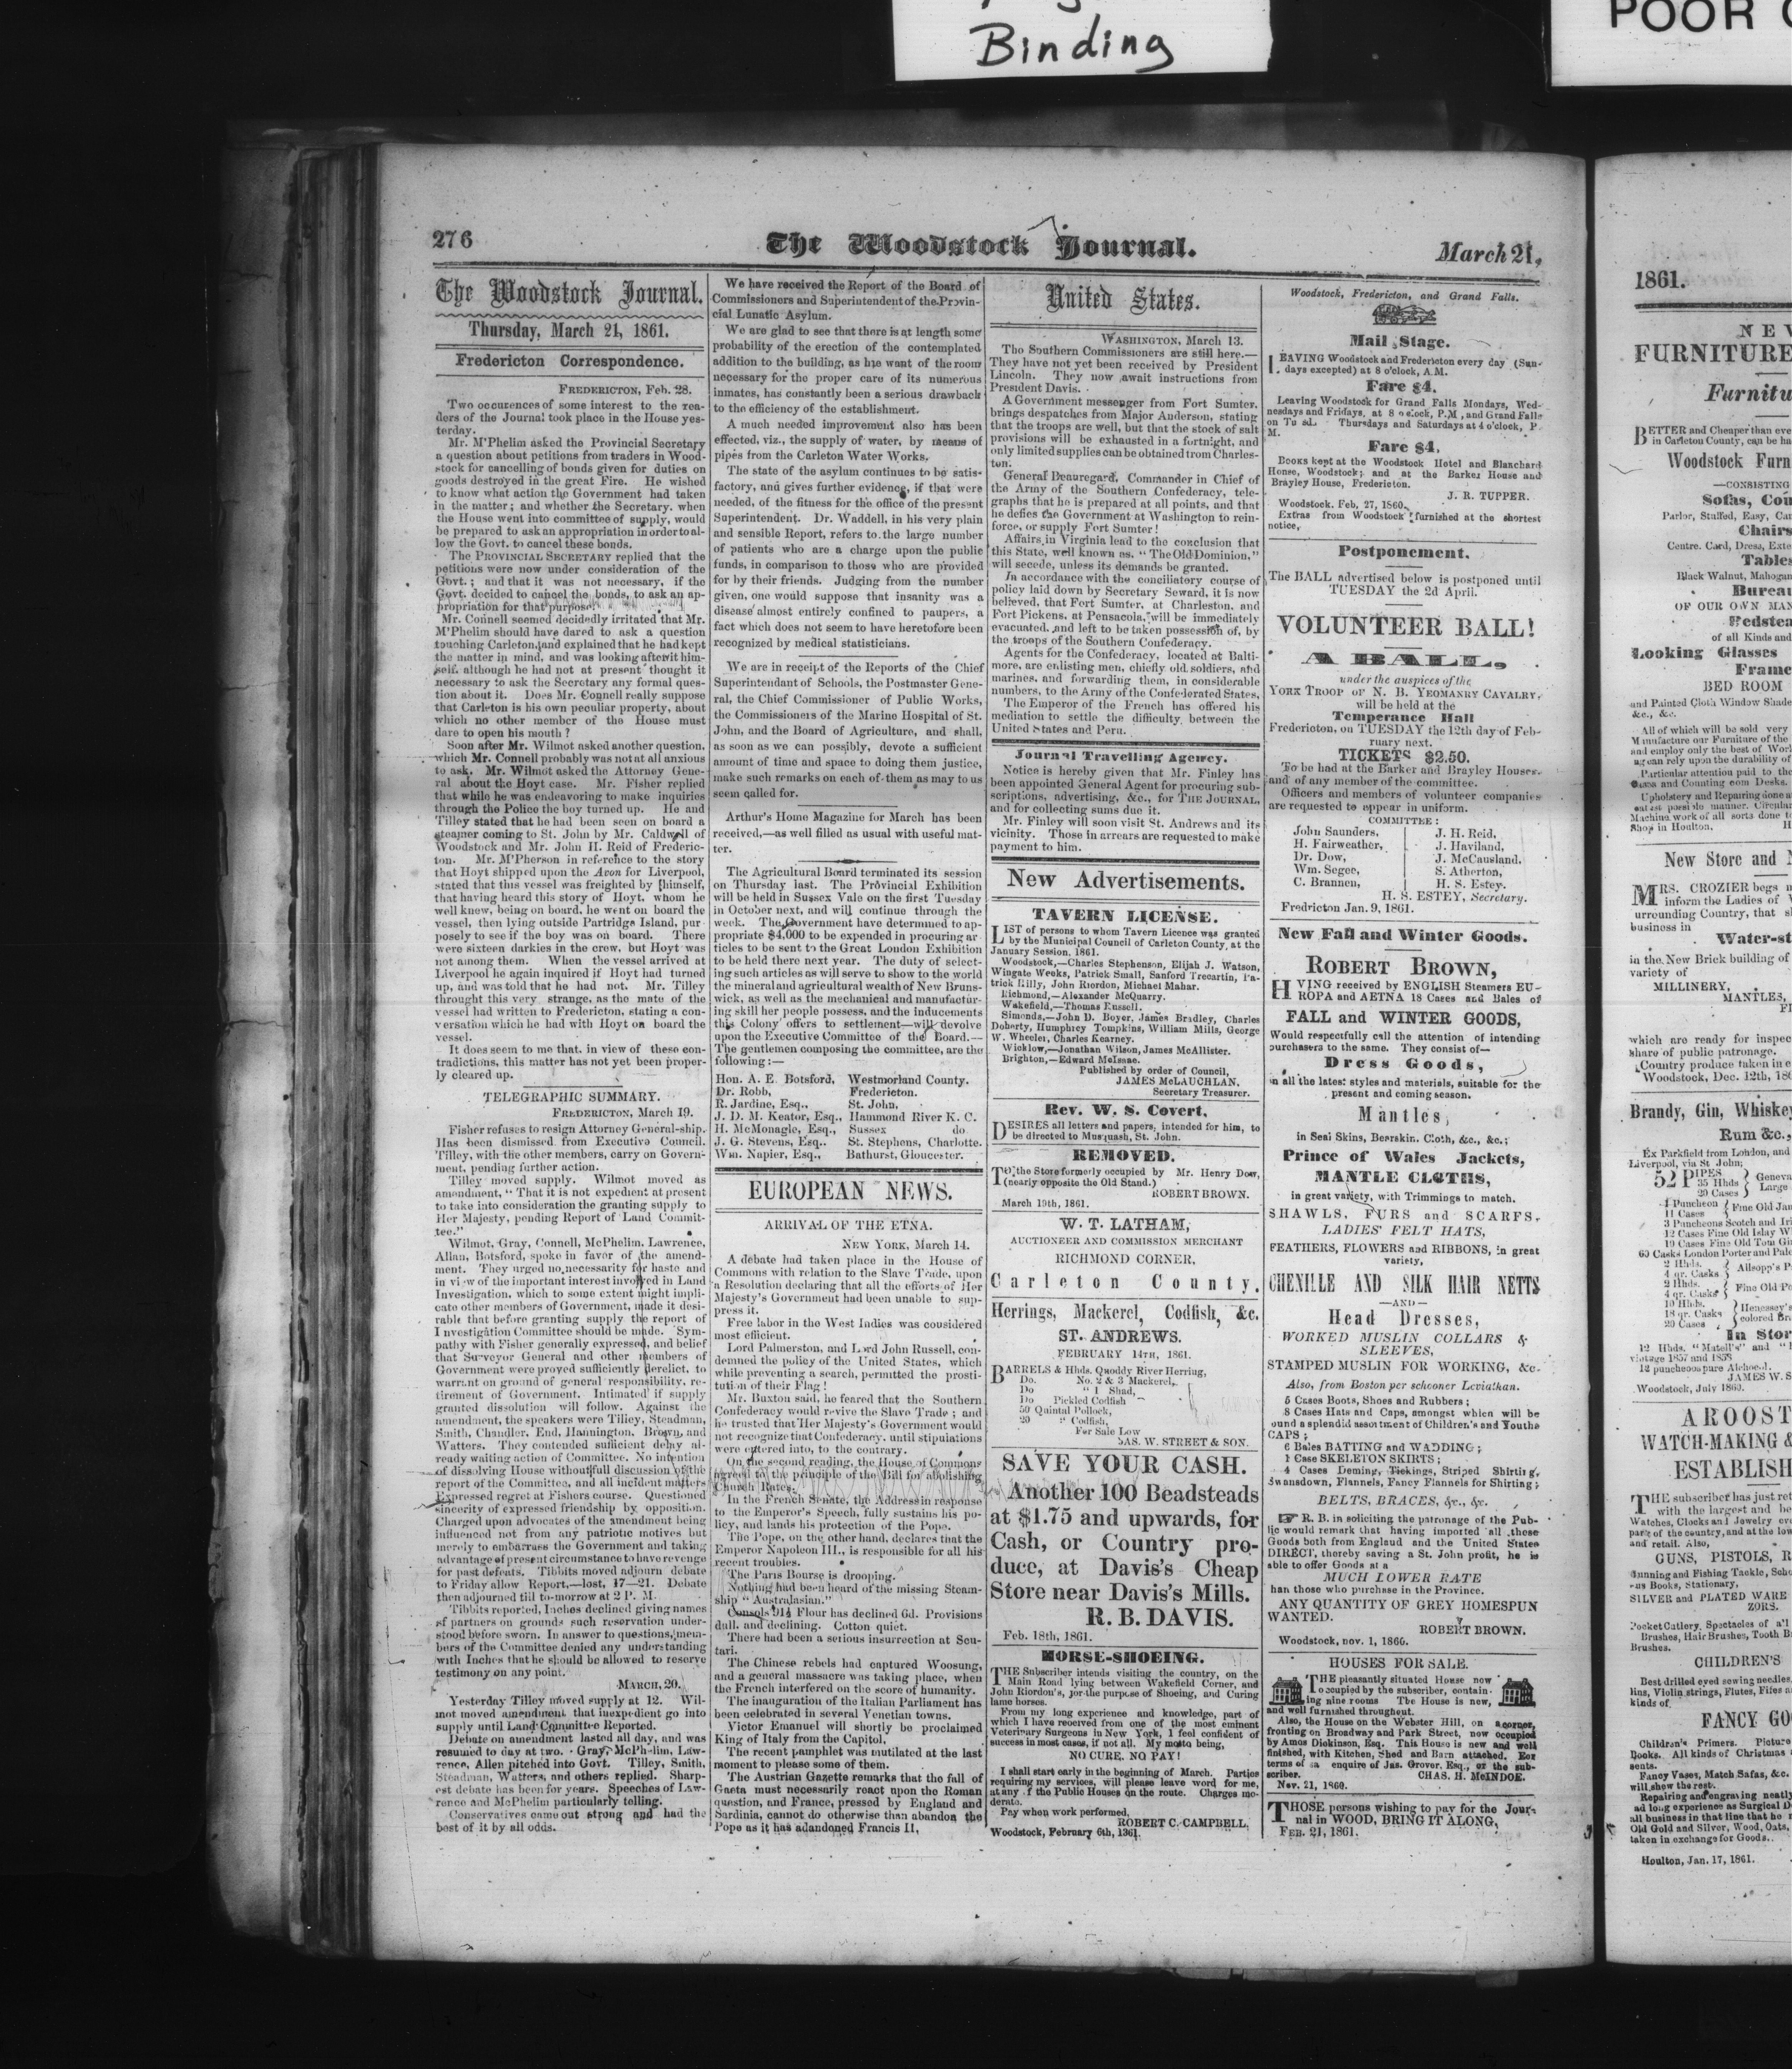 Binding
POOR
276
The Woodstock Journal.
March 21,
The Woodstock Journal.
Thursday, March 21, 1861.
Fredericton Correspondence.
FREDERICTON, Feb. 28.
Two occurences of some interest to the rea-
ders of the Journal took place in the House yes-
terday.
Mr. M'Phelim asked the Provincial Secretary
a question about petitions from traders in Wood-
stock for cancelling of bonds given for duties on
goods destroyed in the great Fire. He wished
to know what action the Government had taken
in the matter; and whether the Secretary, when
the House went into committee of supply, would
be prepared to ask an appropriation in order to al-
low the Govt. to cancel these bonds.
The PROVINCIAL SECRETARY replied that the
petitions were now under consideration of the
Govt.; and that it was not necessary, if the
Govt. decided to cancel the bonds, to ask an ap-
propriation for that purpose.
Mr. Connell seemed decidedly irritated that Mr.
M'Phelim should have dared to ask a question
touching Carleton, and explained that he had kept
the matter in mind, and was looking after it him-
self, although he had not at present thought it
necessary to ask the Secretary any formal ques-
tion about it. Does Mr. Connell really suppose
that Carleton is his own peculiar property, about
which no other member of the House must
dare to open his mouth ?
Soon after Mr. Wilmot asked another question,
which Mr. Connell probably was not at all anxious
to ask. Mr. Wilmot asked the Attorney Gene-
ral about the Hoyt case. Mr. Fisher replied
that while he was endeavoring to make inquiries
through the Police the boy turned up. He and
Tilley stated that he had been seen on board a
steamer coming to St. John by Mr. Caldwell of
Woodstock and Mr. John H. Reid of Frederic-
ton. Mr. M'Pherson in reference to the story
that Hoyt shipped upon the Avon for Liverpool,
stated that this vessel was freighted by himself,
that having heard this story of Hoyt, whom he
well knew, being on board, he went on board the
vessel, then lying outside Partridge Island, pur-
posely to see if the boy was on board. There
were sixteen darkies in the crew, but Hoyt was
not among them. When the vessel arrived at
Liverpool he again inquired if Hoyt had turned
up, and was told that he had not. Mr. Tilley
throught this very strange, as the mate of the
vessel had written to Fredericton, stating a con-
versation which he had with Hoyt on board the
vessel.
It does seem to me that, in view of these con-
tradictions, this matter has not yet been proper-
ly cleared up.
TELEGRAPHIC SUMMARY.
FREDERICTON, March 19.
Fisher refuses to resign Attorney General-ship.
Has been dismissed from Executive Council.
Tilley, with the other members, carry on Govern-
ment, pending further action.
Tilley moved supply. Wilmot moved as
amendment, "That it is not expedient at present
to take into consideration the granting supply to
Her Majesty, pending Report of Land Commit-
tee."
Wilmot, Gray, Connell, McPhelim, Lawrence,
Allan, Botsford, spoke in favor of the amend-
ment. They urged no necessarity for haste and
in view of the important interest involved in Land
Investigation, which to some extent might impli-
cate other members of Government, made it desi-
rable that before granting supply the report of
Investigation Committee should be made. Sym-
pathy with Fisher generally expressed, and belief
that Surveyor General and other members of
Government were proved sufficiently derelict, to
warrant on ground of general responsibility, re-
tirement of Government. Intimated if supply
granted dissolution will follow. Against the
amendment, the speakers were Tilley, Steadman,
Smith, Chandler, End, Hannington, Brown, and
Watters. They contended sufficient delay al-
ready waiting action of Committee. No intention
of dissolving House without full discussion of the
report of the Committee, and all incident matters
Expressed regret at Fishers course. Questioned
sincerity of expressed friendship by opposition.
Charged upon advocates of the amendment being
influenced not from any patriotic motives but
merely to embarrass the Government and taking
advantage of present circumstance to have revenge
for past defeats. Tibbits moved adjourn debate
to Friday allow Report,—lost, 17—21. Debate
then adjourned till to-morrow at 2 P. M.
Tibbits reported, Inches declined giving names
of partners on grounds such reservation under-
stood before sworn. In answer to questions, mem-
bers of the Committee denied any understanding
with Inches that he should be allowed to reserve
testimony on any point.
MARCH, 20.
Yesterday Tilley moved supply at 12. Wil-
mot moved amendment that inexpedient go into
supply until Land Committee Reported.
Debate on amendment lasted all day, and was
resumed to day at two. Gray, McPhelim, Law-
rence, Allen pitched into Govt. Tilley, Smith,
Steadman, Watters, and others replied. Sharp-
est debate has been for years. Speeches of Law-
rence and McPhelim particularly telling.
Conservatives came out strong and had the
best of it by all odds.
We have received the Report of the Board of
Commissioners and Superintendent of the Provin-
cial Lunatic Asylum.
We are glad to see that there is at length some
probability of the erection of the contemplated
addition to the building, as he want of the room
necessary for the proper care of its numerous
inmates, has constantly been a serious drawback
to the efficiency of the establishment.
A much needed improvement also has been
effected, viz., the supply of water, by means of
pipes from the Carleton Water Works.
The state of the asylum continues to be satis-
factory, and gives further evidence, if that were
needed, of the fitness for the office of the present
Superintendent. Dr. Waddell, in his very plain
and sensible Report, refers to the large number
of patients who are a charge upon the public
funds, in comparison to those who are provided
for by their friends. Judging from the number
given, one would suppose that insanity was a
disease almost entirely confined to paupers, a
fact which does not seem to have heretofore been
recognized by medical statisticians.
We are in receipt of the Reports of the Chief
Superintendant of Schools, the Postmaster Gene-
ral, the Chief Commissioner of Public Works,
the Commissioners of the Marine Hospital of St.
John, and the Board of Agriculture, and shall,
as soon as we can possibly, devote a sufficient
amount of time and space to doing them justice,
make such remarks on each of them as may to us
seem called for.
Arthur's Home Magazine for March has been
received,—as well filled as usual with useful mat-
ter.
The Agricultural Board terminated its session
on Thursday last. The Provincial Exhibition
will be held in Sussex Vale on the first Tuesday
in October next, and will continue through the
week. The Government have determined to ap-
propriate $4,000 to be expended in procuring ar-
ticles to be sent to the Great London Exhibition
to be held there next year. The duty of select-
ing such articles as will serve to show to the world
the mineral and agricultural wealth of New Bruns-
wick, as well as the mechanical and manufactur-
ing skill her people possess, and the inducements
this Colony offers to settlement—will devolve
upon the Executive Committee of the Board.—
The gentlemen composing the committee, are the
following:—
Hon. A. E. Botsford, Westmorland County.
Dr. Robb, Fredericton.
R. Jardine, Esq., St. John,
J. D. M. Keator, Esq., Hammond River K. C.
H. McMonagle, Esq., Sussex do.
J. G. Stevens, Esq.. St. Stephens, Charlotte.
Wm. Napier, Esq., Bathurst, Gloucester.
EUROPEAN NEWS.
ARRIVAL OF THE ETNA.
NEW YORK, March 14.
A debate had taken place in the House of
Commons with relation to the Slave Trade, upon
a Resolution declaring that all the efforts of Her
Majesty's Government had been unable to sup-
press it.
Free labor in the West Indies was cousidered
most efficient.
Lord Palmerston, and Lord John Russell, con-
demned the policy of the United States, which
while preventing a search, permitted the prosti-
tution of their Flag!
Mr. Buxton said, he feared that the Southern
Confederacy would revive the Slave Trade; and
he trusted that Her Majesty's Government would
not recognize that Confederacy, until stipulations
were entered into, to the contrary.
On the second reading, the House of Commons
agreed to the principle of the Bill for abolishing
Church Rates.
In the French Senate, the Address in response
to the Emperor's Speech, fully sustains his po-
licy, and lands his protection of the Pope.
The Pope, on the other hand, declares that the
Emperor Napoleon III., is responsible for all his
recent troubles.
The Paris Bourse is drooping.
Nothing had been heard of the missing Steam-
ship "Australasian."
Consols 91½ Flour has declined 6d. Provisions
dull, and declining. Cotton quiet.
There had been a serious insurrection at Scu-
tari.
The Chinese rebels had captured Woosung,
and a general massacre was taking place, when
the French interfered on the score of humanity.
The inauguration of the Italian Parliament has
been celebrated in several Venetian towns.
Victor Emanuel will shortly be proclaimed
King of Italy from the Capitol.
The recent pamphlet was mutilated at the last
moment to please some of them.
The Austrian Gazette remarks that the fall of
Gaeta must necessarily react upon the Roman
question, and France, pressed by England and
Sardinia, cannot do otherwise than abandon the
Pope as it has adandoned Francis II,
United States.
WASHINGTON, March 13.
The Southern Commissioners are still here.—
They have not yet been received by President
Lincoln. They now await instructions from
President Davis.
A Government messenger from Fort Sumter,
brings despatches from Major Anderson, stating
that the troops are well, but that the stock of salt
provisions will be exhausted in a fortnight, and
only limited supplies can be obtained from Charles-
ton.
General Beauregard, Commander in Chief of
the Army of the Southern Confederacy, tele-
graphs that he is prepared at all points, and that
he defies the Government at Washington to rein-
force, or supply Fort Sumter!
Affairs in Virginia lead to the conclusion that
this State, well known as, "The Old Dominion,"
will secede, unless its demands be granted.
In accordance with the conciliatory course of
policy laid down by Secretary Seward, it is now
believed, that Fort Sumter, at Charleston, and
Fort Pickens, at Pensacola, will be immediately
evacuated, and left to be taken possession of, by
the troops of the Southern Confederacy.
Agents for the Confederacy, located at Balti-
more, are enlisting men, chiefly old soldiers, and
marines, and forwarding them, in considerable
numbers, to the Army of the Confederated States,
The Emperor of the French has offered his
mediation to settle the difficulty between the
United States and Peru.
Journal Travelling Agency.
Notice is hereby given that Mr. Finley has
been appointed General Agent for procuring sub-
scriptions, advertising, &c., for THE JOURNAL,
and for collecting sums due it.
Mr. Finley will soon visit St. Andrews and its
vicinity. Those in arrears are requested to make
payment to him.
New Advertisements.
TAVERN LICENSE.
LIST of persons to whom Tavern Licence was granted
by the Municipal Council of Carleton County, at the
January Session, 1861.
Woodstock,—Charles Stephenson, Elijah J. Watson,
Wingate Weeks, Patrick Small, Sanford Trecartin, Pa-
trick Killy, John Riordon, Michael Mahar.
Richmond,—Alexander McQuarry.
Wakefield,—Thomas Russell.
Simonds,—John D. Boyer, James Bradley, Charles
Doherty, Humphrey Tompkins, William Mills, George
W. Wheeler, Charles Kearney.
Wicklow,—Jonathan Wilson, James McAllister.
Brighton,—Edward McIsaac.
Published by order of Council,
JAMES McLAUCHLAN,
Secretary Treasurer.
Rev. W. S. Covert,
DESIRES all letters and papers, intended for him, to
be directed to Musquash, St. John.
REMOVED.
TO the Store formerly occupied by Mr. Henry Dow,
(nearly opposite the Old Stand.)
ROBERT BROWN.
March 19th, 1861.
W. T. LATHAM,
AUCTIONEER AND COMMISSION MERCHANT
RICHMOND CORNER,
Carleton County.
Herrings, Mackerel, Codfish, &c.
ST. ANDREWS.
FEBRUARY 14TH, 1861.
BARRELS & Hhds. Quoddy River Herring,
Do. No. 2 & 3 Mackerel,
Do " 1 Shad,
Do Pickled Codfish
50 Quintal Pollock,
20 " Codfish,
For Sale Low
JAS. W. STREET & SON.
SAVE YOUR CASH.
Another 100 Beadsteads
at $1.75 and upwards, for
Cash, or Country pro-
duce, at Davis's Cheap
Store near Davis's Mills.
R. B. DAVIS.
Feb. 18th, 1861.
HORSE-SHOEING.
THE Subscriber intends visiting the country, on the
Main Road lying between Wakefield Corner, and
John Riordon's, for the purpose of Shoeing, and Curing
lame horses.
From my long experience and knowledge, part of
which I have received from one of the most eminent
Veterinary Surgeons in New York, I feel confident of
success in most cases, if not all. My motto being,
NO CURE, NO PAY!
I shall start early in the beginning of March. Parties
requiring my services, will please leave word for me,
at any of the Public Houses on the route. Charges mo-
derate.
Pay when work performed,
ROBERT C. CAMPBELL,
Woodstock, February 6th, 1861.
Woodstock, Fredericton, and Grand Falls.
Mail Stage.
LEAVING Woodstock and Fredericton every day (Sun-
days excepted) at 8 o'clock, A.M.
Fare $4.
Leaving Woodstock for Grand Falls Mondays, Wed-
nesdays and Fridays, at 8 o'clock, P.M, and Grand Falls
on Thursdays and Saturdays at 4 o'clock, P.
M.
Fare $4.
Books kept at the Woodstock Hotel and Blanchard
House, Woodstock; and at the Barker House and
Brayley House, Fredericton.
J. R. TUPPER.
Woodstock, Feb, 27, 1860.
Extras from Woodstock furnished at the shortest
notice,
Postponement.
The BALL advertised below is postponed until
TUESDAY the 2d April.
VOLUNTEER BALL!
A BALL,
under the auspices of the
YORK TROOP OF N. B. YEOMANRY CAVALRY,
will be held at the
Temperance Hall
Fredericton, on TUESDAY the 12th day of Feb-
ruary next.
TICKETS $2.50.
To be had at the Barker and Brayley Houses,
and of any member of the committee.
Officers and members of volunteer companies
are requested to appear in uniform.
COMMITTEE:
John Saunders, J. H. Reid,
H. Fairweather, J. Haviland,
Dr. Dow, J. McCausland,
Wm. Segee, S. Atherton,
C. Brannen, H. S. Estey.
H. S. ESTEY, Secretary.
Fredricton Jan. 9, 1861.
New Fall and Winter Goods.
ROBERT BROWN,
HAVING received by ENGLISH Steamers EU-
ROPA and AETNA 18 Cases and Bales of
FALL and WINTER GOODS,
Would respectfully call the attention of intending
purchasers to the same. They consist of—
Dress Goods,
in all the latest styles and materials, suitable for the
present and coming season.
Mantles,
in Seal Skins, Bearskin, Cloth, &c., &c.;
Prince of Wales Jackets,
MANTLE CLOTHS,
in great variety, with Trimmings to match.
SHAWLS, FURS and SCARFS,
LADIES' FELT HATS,
FEATHERS, FLOWERS and RIBBONS, in great
variety,
CHENILLE AND SILK HAIR NETTS
—AND—
Head Dresses,
WORKED MUSLIN COLLARS &
SLEEVES,
STAMPED MUSLIN FOR WORKING, &c.
Also, from Boston per schooner Leviathan.
5 Cases Boots, Shoes and Rubbers;
8 Cases Hats and Caps, amongst which will be
found a splendid assortment of Children's and Youths
CAPS;
6 Bales BATTING and WADDING;
1 Case SKELETON SKIRTS;
4 Cases Deming, Tickings, Striped Shirting,
Swansdown, Flannels, Fancy Flannels for Shirting;
BELTS, BRACES, &c., &c.
R. B. in soliciting the patronage of the Pub-
lic would remark that having imported all these
Goods both from England and the United States
DIRECT, thereby saving a St. John profit, he is
able to offer Goods at a
MUCH LOWER RATE
than those who purchase in the Province.
ANY QUANTITY OF GREY HOMESPUN
WANTED.
ROBERT BROWN.
Woodstock, nov. 1, 1860.
HOUSES FOR SALE.
THE pleasantly situated House now
occupied by the subscriber, contain-
ing nine rooms The House is new,
and well furnished throughout.
Also, the House on the Webster Hill, on a corner,
fronting on Broadway and Park Street, now occupied
by Amos Dickinson, Esq. This House is new and well
finished, with Kitchen, Shed and Barn attached. For
terms of sa enquire of Jas. Grover, Esq., or the sub-
scriber.
CHAS. H. McINDOE.
Nov. 21, 1860.
THOSE persons wishing to pay for the Jour-
nal in WOOD, BRING IT ALONG,
FEB. 21, 1861.
1861.
NEW
FURNITURE
Furnitu
BETTER and Cheaper than eve
in Carleton County, can be ha
Woodstock Furn
—CONSISTING
Sofas, Cou
Parlor, Stuffed, Easy, Can
Chairs
Centre. Card, Dress, Exte
Tables
Black Walnut, Mahogan
Bureau
OF OUR OWN MAN
Bedstea
of all Kinds and
Looking Glasses
Frame
BED ROOM
and Painted Cloth Window Shade
&c., &c.
All of which will be sold very
Manufacture our Furniture of the
and employ only the best of Wor
agcan rely upon the durability of
Particular attention paid to the
and Counting oom Desks.
Upholstery and Repairing done a
manner. Circular
Machine work of all sorts done t
Shop in Houlton.
New Store and
MRS. CROZIER begs
inform the Ladies of
urrounding Country, that s
business in
Water-st
in the New Brick building of
variety of
MILLINERY,
MANTLES,
which are ready for inspec
share of public patronage.
Country produce taken in e
Woodstock, Dec. 12th, 186
Brandy, Gin, Whiskey
Rum &c.,
Ex Parkfield from London, and
Liverpool, via St John;
52 PIPES
35 Hhds Geneva
20 Cases Large
4 Puncheon
11 Cases Fine Old Jam
3 Puncheons Scotch and Iri
12 Cases Fine Old Islay W
19 Cases Fine Old Tom Gin
60 Casks London Porter and Pale
2 Hhds.
4 qr. Casks Allsopp's P
2 Hhds.
4 qr. Casks Fine Old Po
10 Hhds. Henessey's
18 qr. Casks colored Bra
20 Cases
In Stor
12 Hhds. "Matell's" and "
vintage 1857 and 1858
12 puncheons pure Alchocol.
JAMES W. S
Woodstock, July 1860.
AROOST
WATCH-MAKING &
ESTABLISH
THE subscriber has just ret
with the largest and be
Watches, Clocks and Jewelry ev
part of the country, and at the low
and retail. Also,
GUNS, PISTOLS, R
Gunning and Fishing Tackle, Scho
Books, Stationary,
SILVER and PLATED WARE
ZORS.
Pocket Cutlery, Spectacles of all
Brushes, Hair Brushes, Tooth B
Brushes.
CHILDREN'S
Best drilled eyed sewing needles,
lins, Violin strings, Flutes, Fifes a
kinds of
FANCY GO
Children's Primers. Picture
Books. All kinds of Christmas
sents.
Fancy Vases, Match Safas, &c.
will show the rest.
Repairing and engraving neatly
ad long experience as Surgical D
all business in that line that he
Old Gold and Silver, Wood, Oats,
taken in exchange for Goods.
Houlton, Jan. 17, 1861.